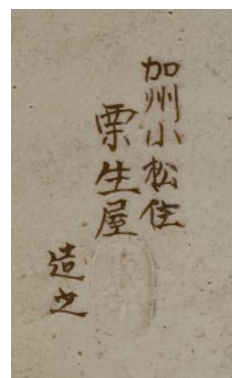 加州小松住
栗生屋
造之